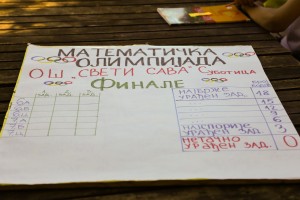 МАТЕМАТИЧКА
ОЛИМПИЈАДА
ОШ „СВЕТИ САВА" СУБОТИЦА
ФИНАЛЕ
НАЈБРЖЕ
УРАЂЕН ЗАД. 18
15
12
9
6
НАЈСПОРИЈЕ
УРАЂЕН ЗАД. 3
НЕТАЧНО
УРАЂЕН ЗАД. 0